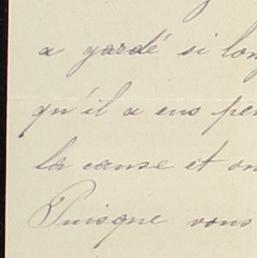 a gardé si lon
qu'il a eus pen
la cause et on
Puisque vous